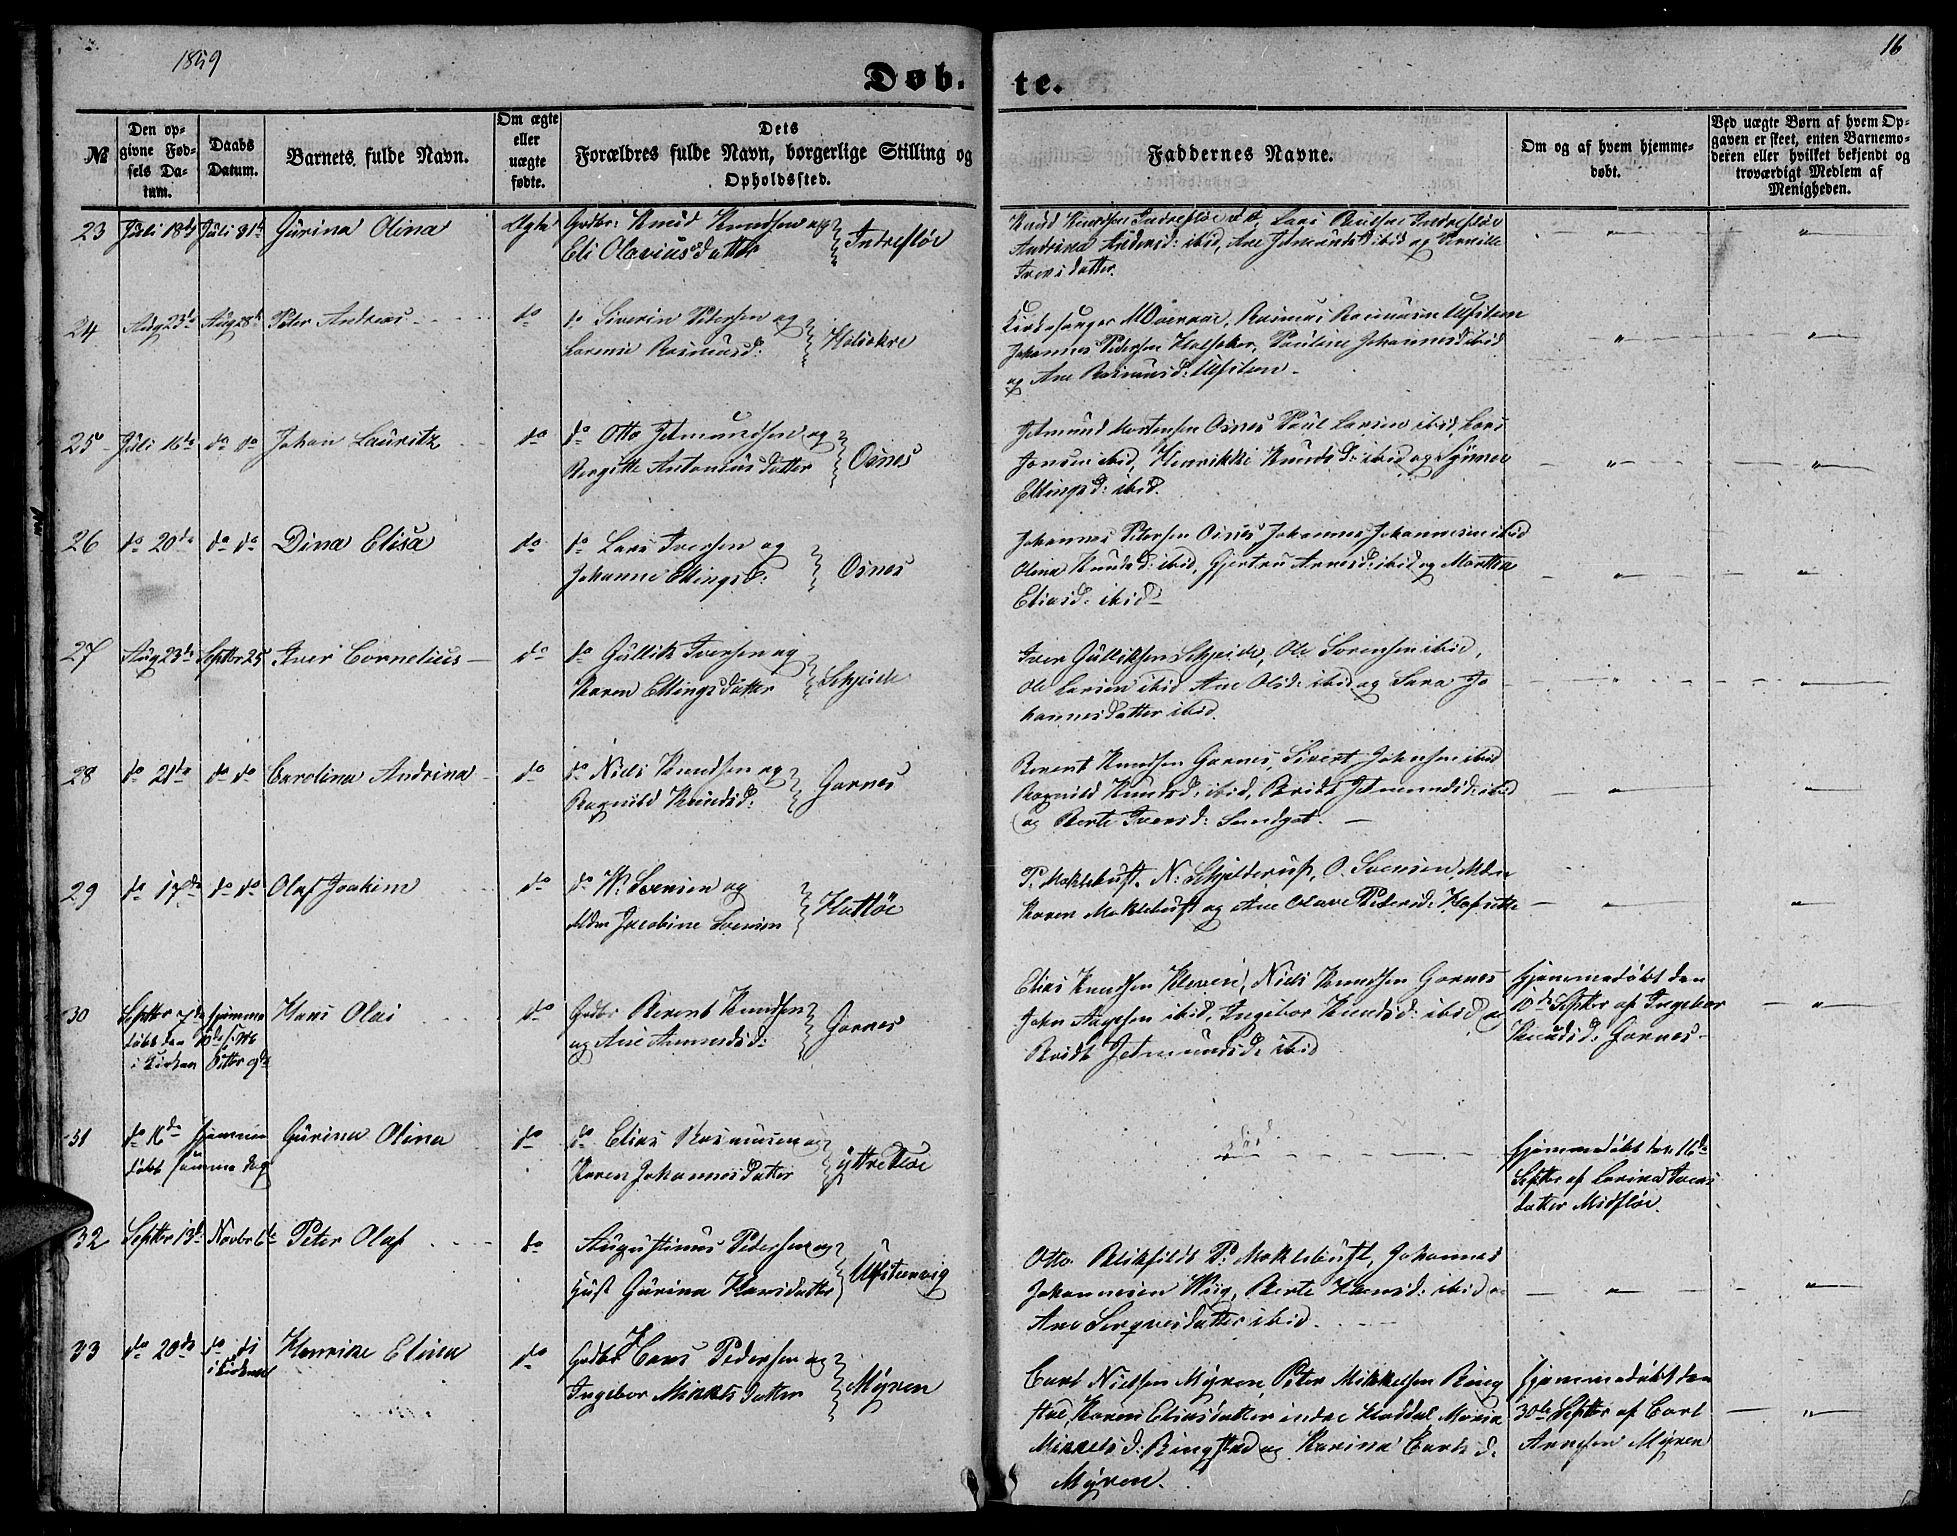 1859
Døb-
te.
16
№
Den op-
givne Fød-
sels Da-
tum.
Daabs
Datum.
Barnets fulde Navn.
Om ægte
eller
uægte
fødte.
Dets
Forældres fulde Navn, borgerlige Stilling og
Opholdssted.
Faddernes Navne.
Om og af hvem hjemme-
døbt.
Ved uægte Børn af hvem Op-
gaven er skeet, enten Barnemo-
deren eller hvilket bekjendt og
troværdigt Medlem af
Menigheden.
23 Juli 18de Juli 31te Gurina Olina Ægte Gdbr: Knud Knudsen og
Eli Olavius datter Indrefløe
Knud Knudsen Indrefløe Lars Indrefløe
Andrina Anders d: ibid, Ane Jetmunds d ibid og
Ivers datter.
24 Aug 23de Aug 28de Peter Andreas do do Siverin Pedersen og
Lorense Rasmusd: Holsøkre
Kirkesanger Rasmus Rasmusen Ufsteen
Johannes Pedersen Pauline Johannesd ibid
og Ane Rasmusd: Ufsteen
25 Juli 16de do do Johan Lauritz do do Otto Jetmundsen og
Birgitte Antonius datter Osnes
Jetmund Mortensen Osnes Paul Larsen ibid, Lars
Jonsen ibid, Henrikke Knuds d: ibid og Synnev
Ellings d: ibid.
26 do 20de do do Dina Elisa do do Lars Iversen og
Johanne Ellingsd: Osnes
Johannes Petersen Osnes, Johannes Johannesen ibid
Olina Knudsd: ibid, Gjertru Arnesd: ibid og Marthe
Eliasd: ibid
27 Aug 23de Septbr 25 Iver Cornelius do do Gullik Iversen og
Karen Ellings datter Skjeide
Iver Gulliksen Skjeide, Ole Sørensen ibid,
Ole Larsen ibid Ane Olsd: ibid og Sara Jo
hannesdatter ibid.
28 do 21de do do Carolina Andrina do do Niels Knudsen og
Ragnild Knudsd: Garnes
Berent Knudsen Garnes, Sivert Johnsen ibid
Ragnild Knudsd: ibid, Bridt Jetmundsd: ibid
og Berte Iversd: Sundgot.
29 do 17de do do Olaf Joakim do do W. Svensen og
Jacobine Svensen Hatløe
P. Moklebust, N. Schjelderup, O. Svensen, Mdm
Karen Moklebust og Ane Olave Pedersd: Hofsette
30 Septbr 7de hjemme
døbt den 10de
i Kirken Octbr 9de
Hans Olai do Gdbr Berent Knudsen
og Ane Amundsd: Garnes
Elias Knudsen Kleven, Niels Knudsen Garnes
John Aagesen ibid, Ingebor Knudsd: ibid og
Bridt Jetmundsd: ibid
hjemmedøbt den
10de Septbr af Ingebor
Knudsd: Garnes
31 do 16de hjemme
døbt samme dag
Gurina Olina do do Elias Rasmusen og
Karen Johannesdatter Yttrefløe
død
hjemmedøbt den 16de
Septbr af Carina Ivers
datter Midfløe.
32 Septbr 13de Novbr 6te Peter Olaf do Augustinus Pedersen og
Hust Gurina Hansdatter Ufsteenvig
Otto Blikfeldt P. Moklebust, Johannes
Johannesen Wiig, Berte Hansd: ibid og
Ane datter ibid.
33 do 20de do do
i Kirken
Henrikke Elina do Gdbr Hans Pedersen og
Ingebor Mikkels datter Myren
Carl Nielsen Myren, Peter Mikkelsen Ring
stad, Karen Eliasdatter indre Haddal Maria
Mikkelsd: Ringstad og Karina Carls d.
Myren.
hjemmedøbt den
30te Septbr af Carl
Arnesen Myren